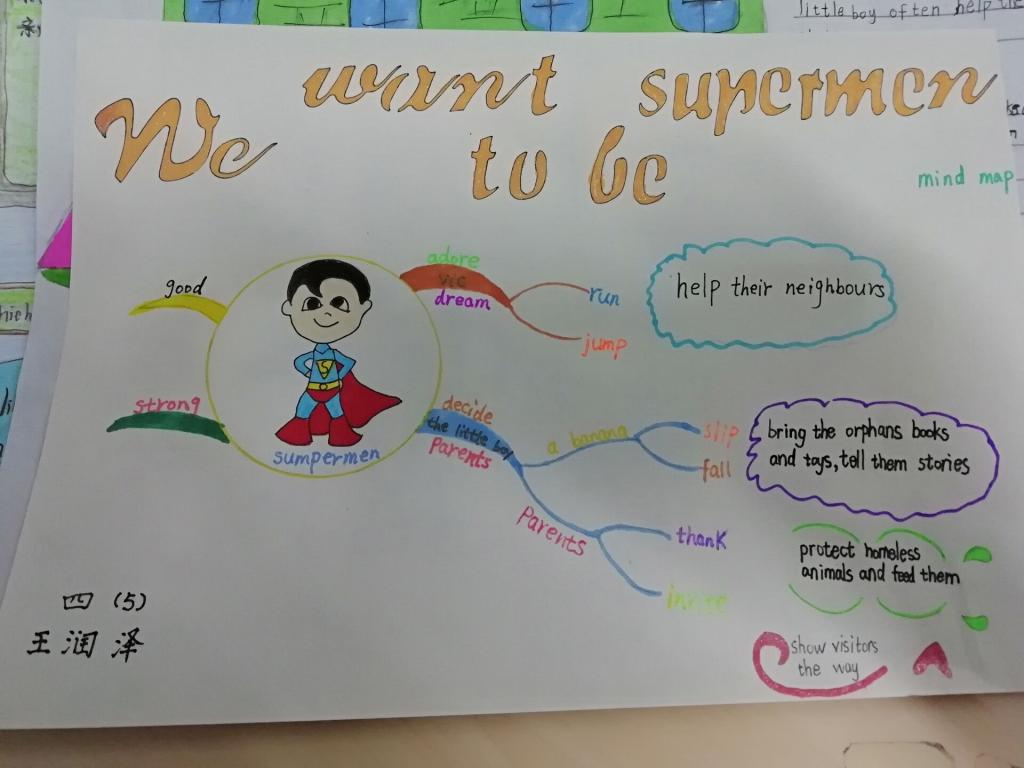 We want supermen
to be
mind map
good
strong
sumpermen
adore
vic
dream
run
jump
help their neighbours
decide
the little boy
parents
a banana
slip
fall
parents
thank
invite
bring the orphans books
and toys, tell them stories
protect homeless
animals and feed them
show visitors
the way
四 (5)
王润泽
little boy often help the